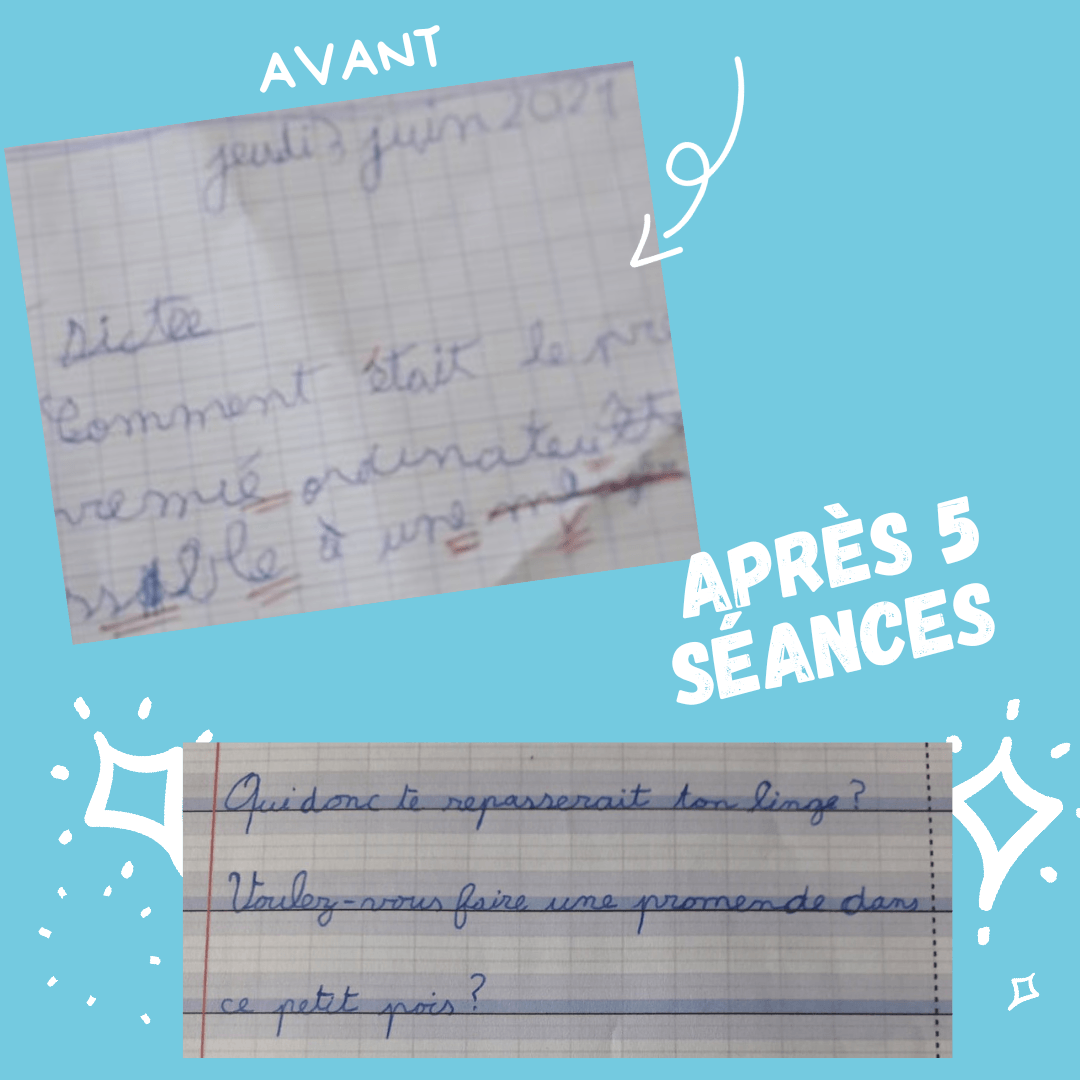 AVANT
jeudi 3 juin 2021
Dictée
Comment était le pr
remié ordinateur
ssible à une
APRÈS 5
SÉANCES
Qui donc te repasserait ton linge ?
Voulez-vous faire une promende dans
ce petit pois ?